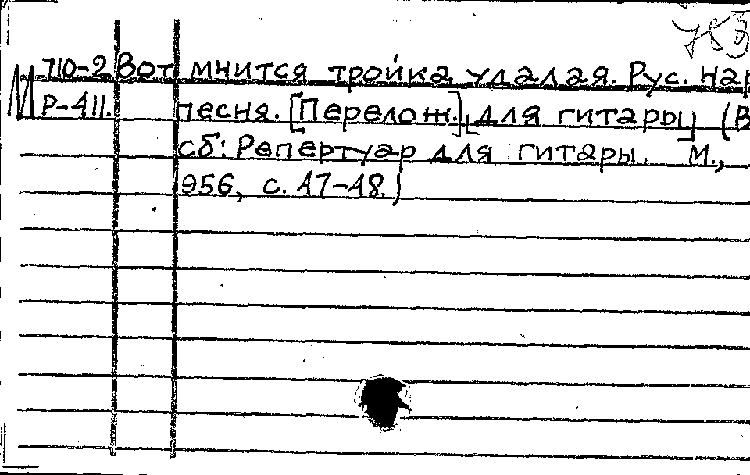 710-2 Вот мчится тройка удалая. Рус. нар
Р-411. песня. [Перелож.] [для гитары] (В
сб: Репертуар для гитары. М.,
956, с. 47-48.)